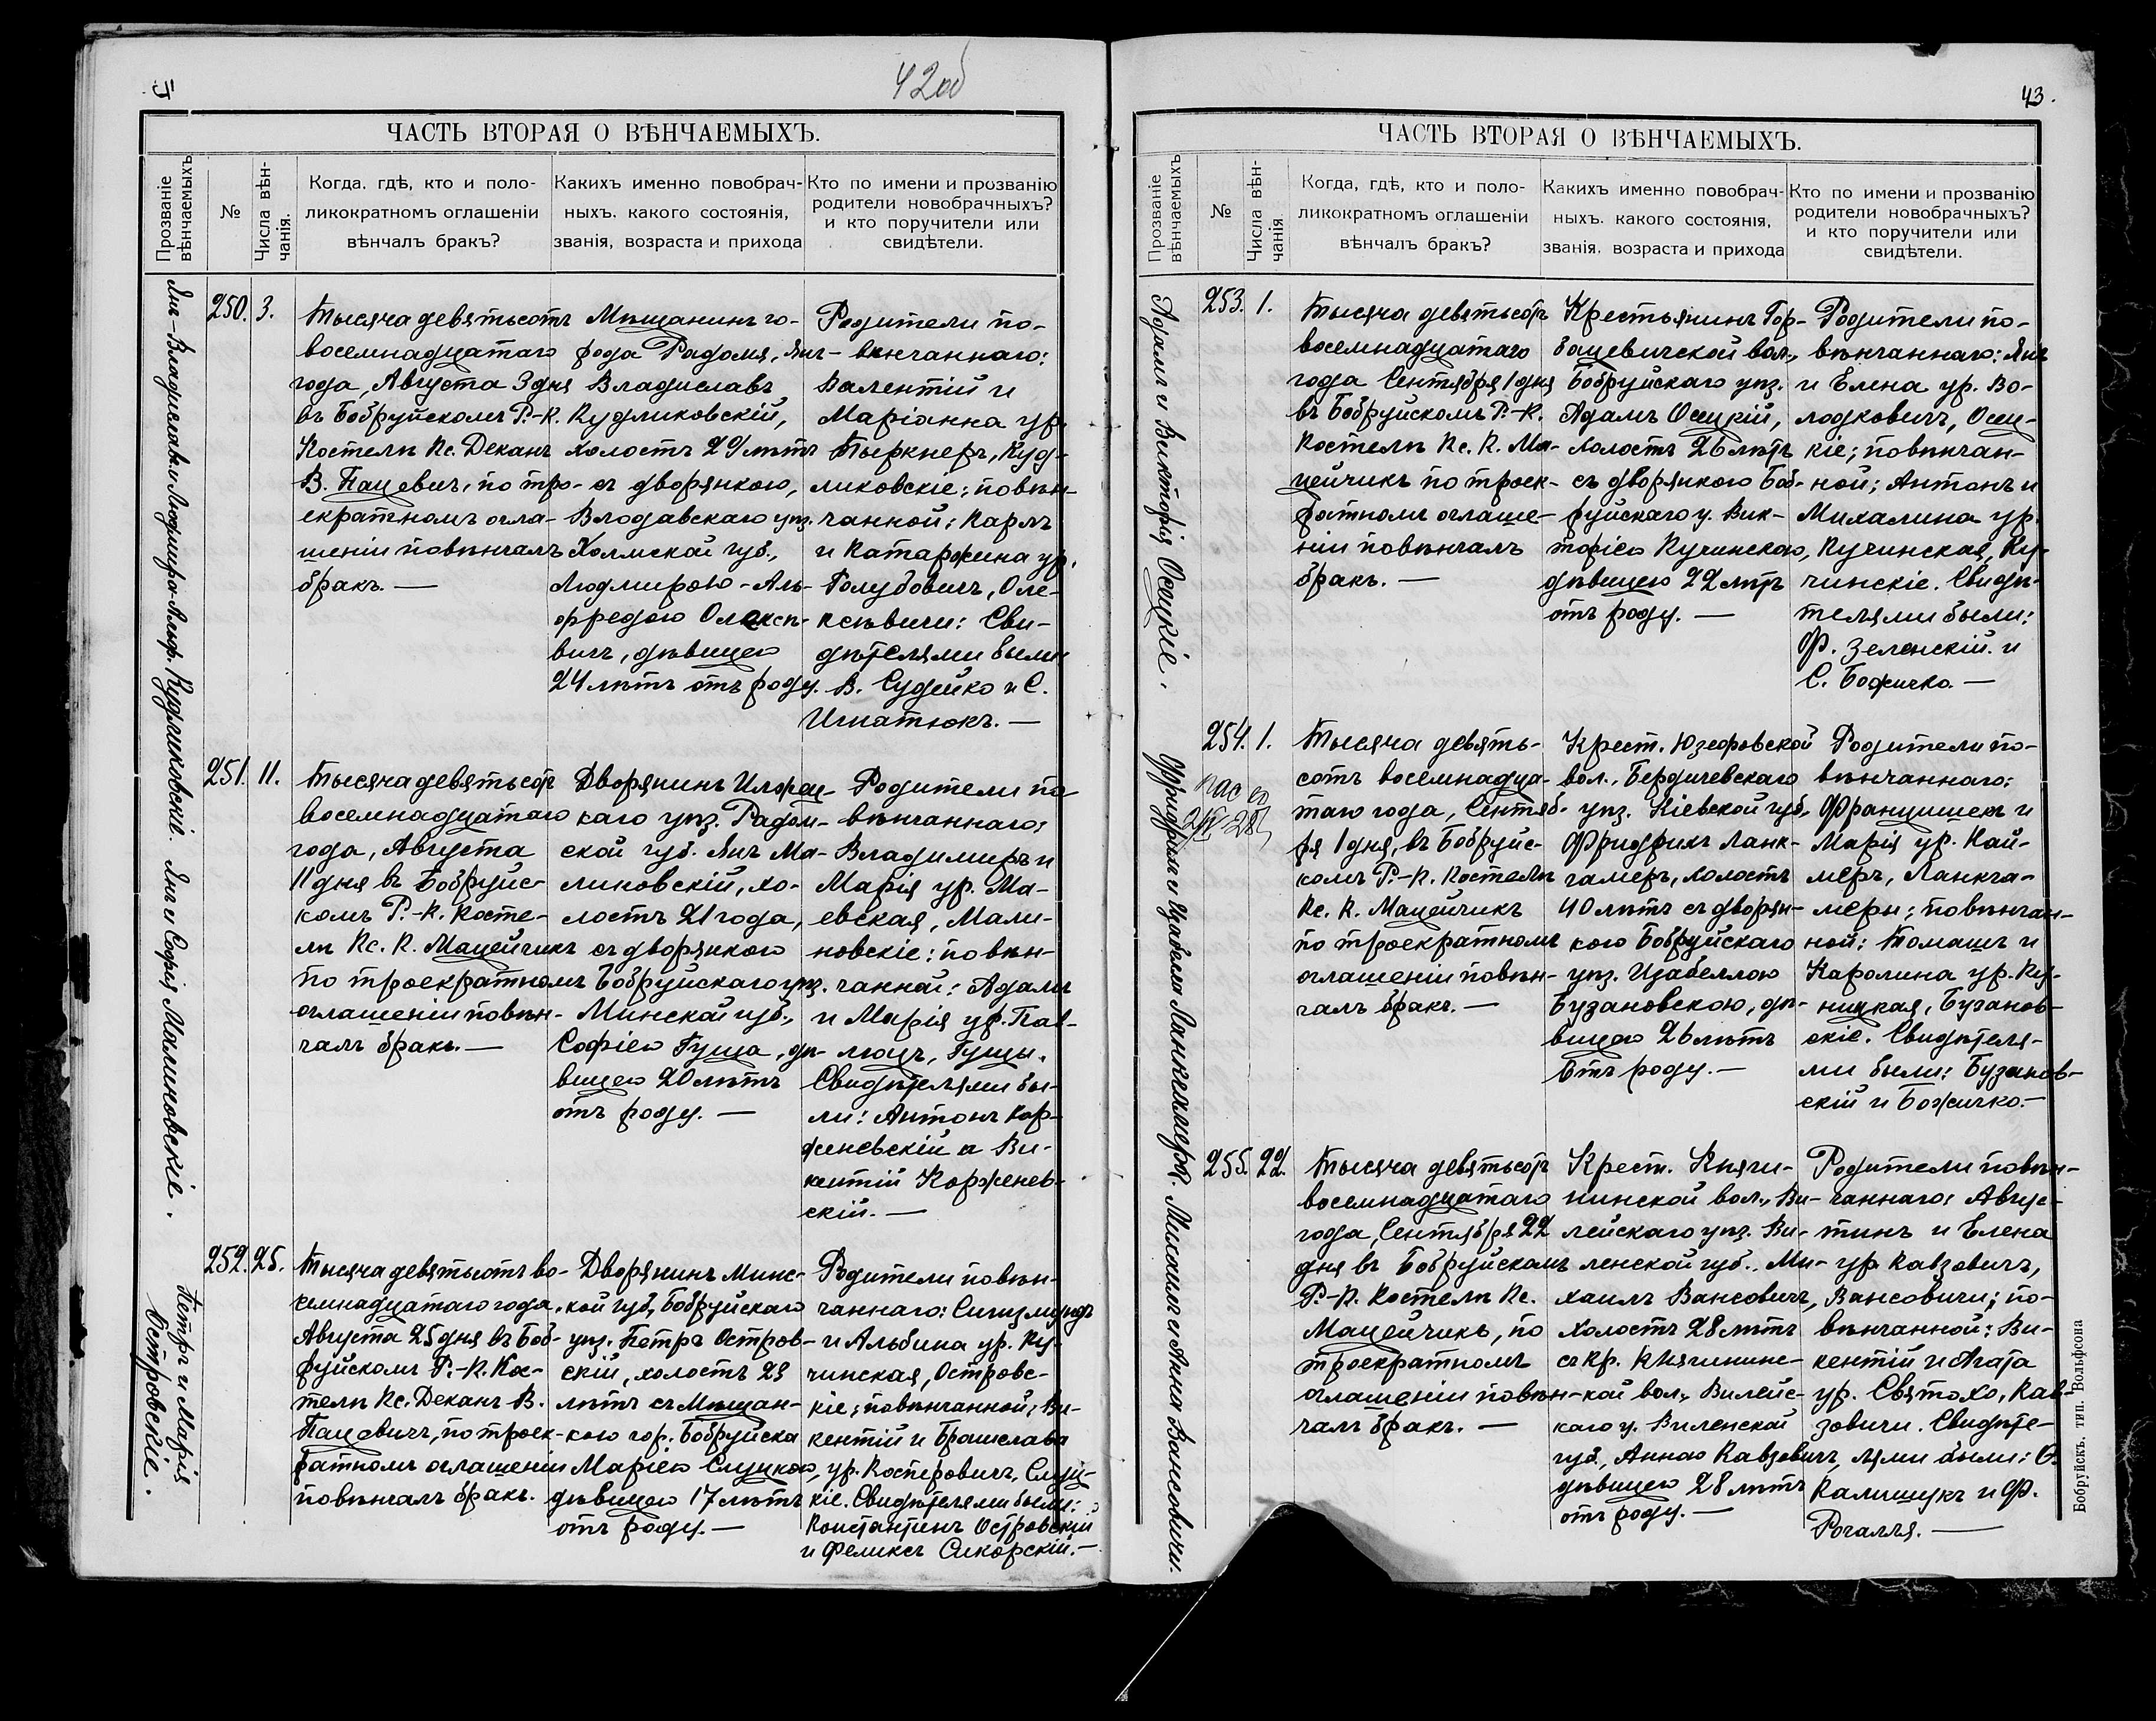 42об
ЧАСТЬ ВТОРАЯ О ВѢНЧАЕМЫХЪ.
Прозваніе вѣнчаемыхъ
№
Числа вѣн-
чанія.
Когда, гдѣ, кто и поло-
ликократномъ оглашеніи
вѣнчалъ бракъ?
Какихъ именно повобрач-
ныхъ, какого состоянія,
званія, возраста и прихода
Кто по имени и прозванію
родители новобрачныхъ?
и кто поручители или
свидѣтели.
Янъ-Владиславъ и Людмира-Альф. Кудликовскіе.
250. 3.
Тысяча девятьсотъ
восемнадцатаго
года, Августа 3 дня
въ Бобруйскомъ Р.-К.
Костелѣ Кс. Деканъ
В. Пацевичъ, по тро-
екратномъ огла-
шеніи повѣнчалъ
бракъ. —
Мѣщанинъ го-
рода Радомя, Янъ-
Владиславъ
Кудликовскій,
холостъ 29 лѣтъ
съ дворянкою,
Влодавскаго уѣз.
Холмской губ.,
Людмирою-Аль-
фредою Олексѣ-
вичъ, дѣвицею
24 лѣтъ отъ роду.
Родители по-
вѣнчаннаго:
Валентій и
Маріанна ур.
Тыркнеръ, Куд-
ликовскіе; повѣн-
чанной: Карлъ
и Катаржина ур.
Голубовичъ, Оле-
ксѣвичи: Сви-
дѣтелями были
В. Судейко и С.
Игнатюкъ. —
Янъ и Софія Малиновскіе.
251. 11.
Тысяча девятьсотъ
восемнадцатаго
года, Августа
11 дня въ Бобруйс-
комъ Р.-К. Косте-
лѣ Кс. К. Мацейчикъ
по троекратномъ
оглашеніи повѣн-
чалъ бракъ. —
Дворянинъ Илжец-
каго уѣз. Радом-
ской губ. Янъ Ма-
линовскій, хо-
лостъ 21 года,
съ дворянкою
Бобруйскаго уѣз.
Минской губ.,
Софіею Гуща, дѣ-
вицею 20 лѣтъ
отъ роду. —
Родители по
вѣнчаннаго:
Владимиръ и
Марія ур. Ма-
евская, Мали-
новскіе: повѣн-
чанной: Адамъ
и Марія ур. Пав-
люцъ, Гущы.
Свидѣтелями бы-
ли: Антонъ Кор-
женевскій и Ви-
кентій Корженев-
скій. —
Петръ и Марія
Островскіе.
252. 25.
Тысяча девятьсотъ во-
семнадцатаго года,
Августа 25 дня въ Боб-
руйскомъ Р.-К. Кос-
телѣ Кс. Деканъ В.
Пацевичъ, по троек-
ратномъ оглашеніи
повѣнчалъ бракъ.
Дворянинъ Минс-
кой губ., Бобруйскаго
уѣз. Петръ Островс-
кій, холостъ 23
лѣтъ съ Мѣщан-
кою гор. Бобруйска
Маріею Слуцкою,
дѣвицею 17 лѣтъ
отъ роду. —
Родители повѣн-
чаннаго: Сигизмундъ
и Альбина ур. Ку-
чинская, Островс-
кіе; повѣнчанной; Ви-
кентій и Брашслава
ур. Костровичъ, Слуц-
кіе. Свидѣтелями были:
Константинъ Островскій
и Феликсъ Сикорскій. —
43.
ЧАСТЬ ВТОРАЯ О ВѢНЧАЕМЫХЪ.
Прозваніе вѣнчаемыхъ
№
Числа вѣн-
чанія
Когда, гдѣ, кто и поло-
ликократномъ оглашеніи
вѣнчалъ бракъ?
Какихъ именно повобрач-
ныхъ, какого состоянія,
званія, возраста и прихода
Кто по имени и прозванію
родители новобрачныхъ?
и кто поручители или
свидѣтели.
Адамъ и Викторія Осецкіе.
253. 1.
Тысяча девятьсотъ
восемнадцатаго
года Сентября 1 дня
въ Бобруйскомъ Р.-К.
Костелѣ Кс. К. Ма-
цейчикъ по троек-
ратномъ оглаше-
ніи повѣнчалъ
бракъ. —
Крестьянинъ Гор-
бацевичской вол.,
Бобруйскаго уѣз.
Адамъ Осецкій,
холостъ 26 лѣтъ
съ дворянкою Боб-
руйскаго у. Вик-
торіею Кучинскою,
дѣвицею 22 лѣтъ
отъ роду. —
Родители по-
вѣнчаннаго: Янъ
и Елена ур. Во-
лодковичъ, Осец-
кіе; повѣнчан-
ной; Антонъ и
Михалина ур.
Кучинская, Ку-
чинскіе. Свидѣ-
телями были:
Ф. Зеленскій и
С. Божичко. —
Фридрихъ и Изабелла Ланкгамеръ.
254. 1.
Тысяча девять-
сотъ восемнадца-
таго года, Сентяб-
ря 1 дня, въ Бобруйс-
комъ Р.-К. Костелѣ
Кс. К. Мацейчикъ
по троекратномъ
оглашеніи повѣн-
чалъ бракъ. —
Крест. Юзефовской
вол., Бердичевскаго
уѣз. Кіевской губ.
Фридрихъ Ланк-
гамеръ, холостъ
40 лѣтъ съ дворян-
кою Бобруйскаго
уѣз. Изабеллою
Бузановскою, дѣ-
вицею 26 лѣтъ
отъ роду. —
Родители по-
вѣнчаннаго:
Францишекъ и
Марія ур. Кай-
меръ, Ланкга-
меры; повѣнчан-
ной: Томашъ и
Каролина ур. Ку-
ницкая, Бузанов-
скіе. Свидѣтеля-
ми были: Бузанов-
скій и Божичко. —
Михаилъ и Анна Вансовичи.
255. 22.
Тысяча девятьсотъ
восемнадцатаго
года, Сентября 22
дня въ Бобруйскомъ
Р.-К. Костелѣ Кс.
Мацейчикъ, по
троекратномъ
оглашеніи повѣн-
чалъ бракъ. —
Крест. Княги-
нинской вол., Ви-
лейскаго уѣз. Ви-
ленской губ., Ми-
хаилъ Вансовичъ,
холостъ 28 лѣтъ
съ кр. Княгининс-
кой вол., Вилейс-
каго у. Виленской
губ., Анною Кавзовичъ,
дѣвицею 28 лѣтъ
отъ роду. —
Родители повѣн-
чаннаго: Авгус-
тинъ и Елена
ур. Кавзовичъ,
Вансовичи; по-
вѣнчанной: Ви-
кентій и Агата
ур. Святохо, Кав-
зовичи. Свидѣте-
лями были: О.
Калишукъ и Ф.
Рогалля. —
Бобруйскъ. тип. Вольфсона